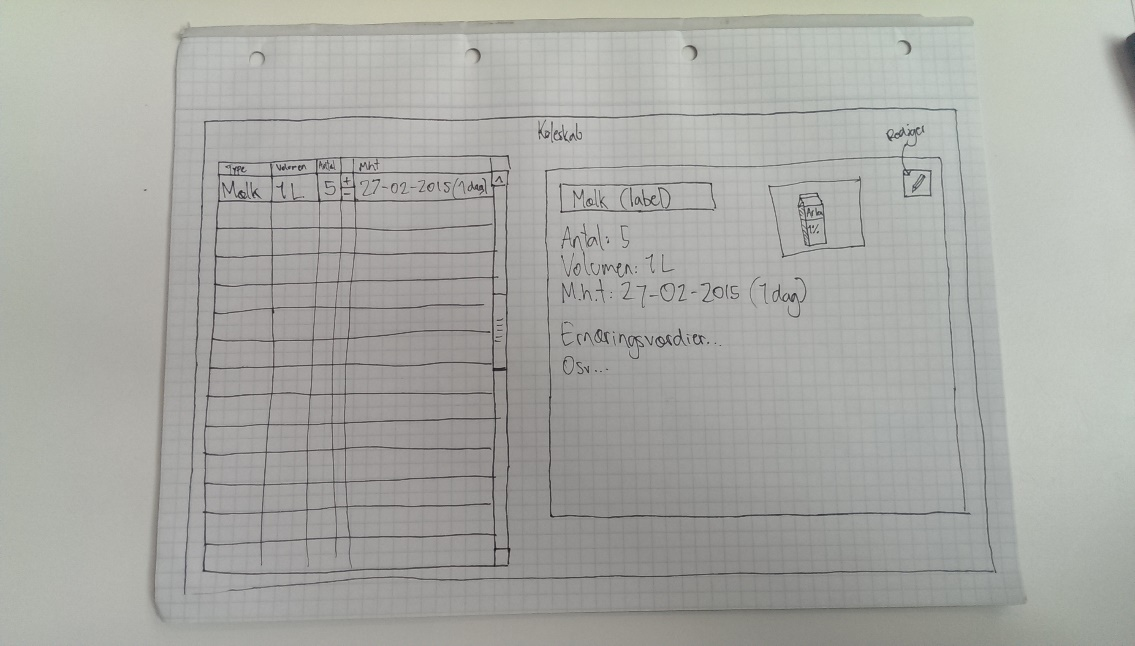 Køleskab
Rediger
Type Volumen Antal Mht
Mælk 1L 5 + - 27-02-2015 (1 dag)
Mælk (label)
Arla
1%
Antal: 5
Volumen: 1L
M.h.t: 27-02-2015 (1 dag)
Ernæringsværdier...
Osv...